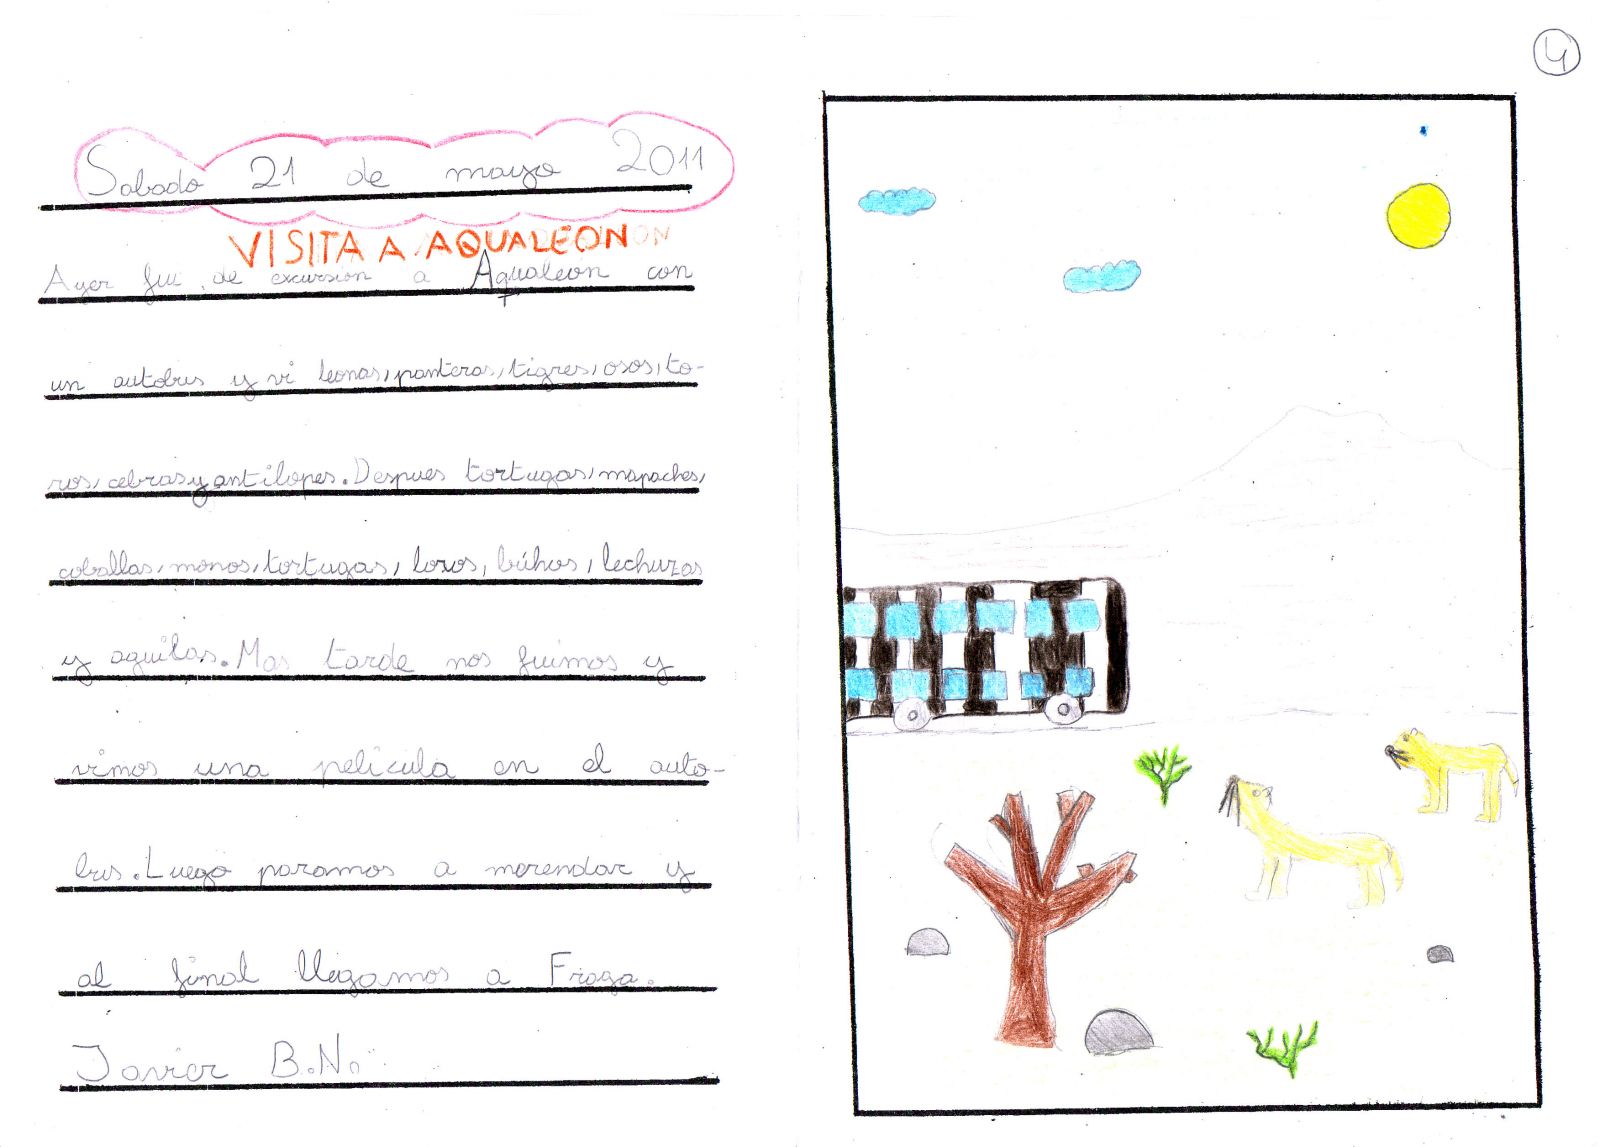 4
Sabado 21 de mayo 2011
VISITA A AQUALEON
Ayer fui de excursion a Aqualeon con
un autobus y vi leonas, panteras, tigres, osos, to-
ros, cebras y antilopes. Despues tortugas, mapaches,
coballas, monos, tortugas, loros, búhos, lechuzas
y aguilas. Mas tarde nos fuimos y
vimos una pelicula en el auto-
bus. Luego paramos a merendar y
al final llegamos a Fraga.
Javier B.N.